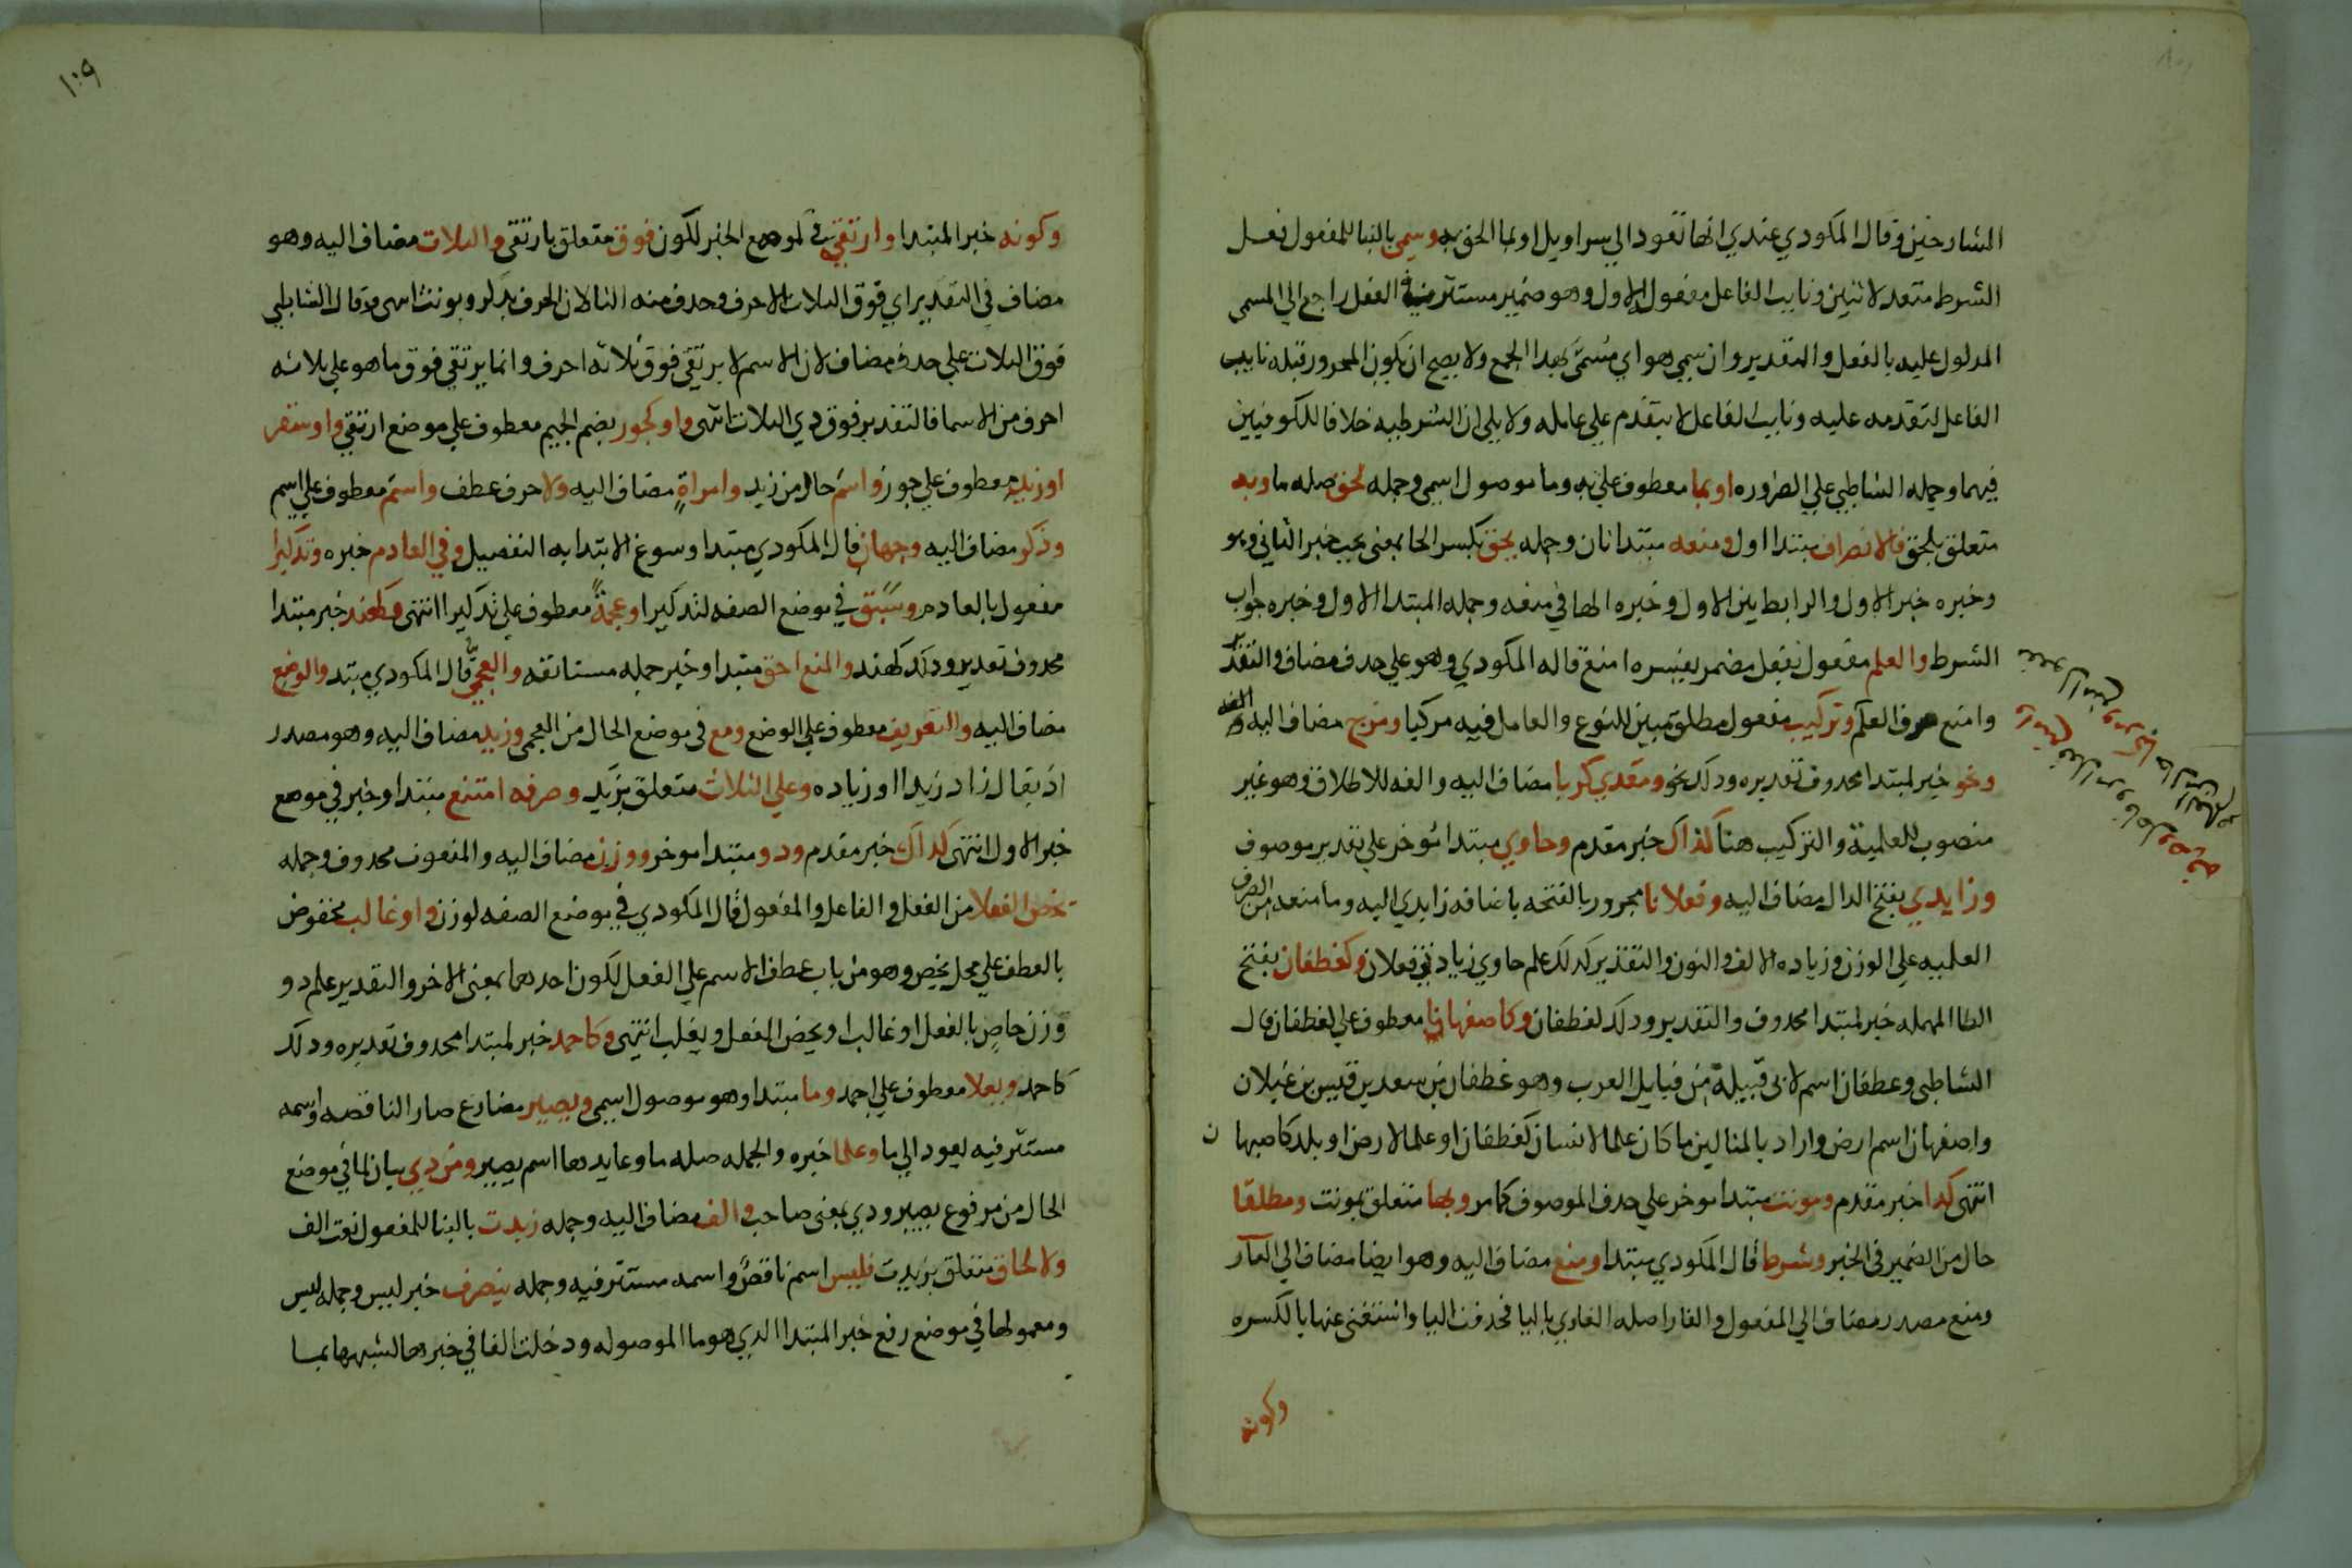 الشارحين وقال المكودي عندي انها تعود الي سراويل او بما الحق به وسمي بالبنا للمفعول فعل
الشرط متعد لاثنين ونايب الفاعل مفعوله الاول وهو ضمير مستتر في الفعل راجع الي المسمي
المدلول عليه بالفعل والتقدير وان سمي هو اي مسمى بهدا الجمع ولا يصح ان يكون المجرور قبله نايب
الفاعل لتقدمه عليه ونايب الفاعل لا يتقدم علي عامله ولا يلي ان الشرطيه خلافا للكوفيين
فيهما وحمله الشاطبي علي الضروره او بما معطوف علي به وما موصول اسمي وجمله لحق صله ما وبه
متعلق بلحق فالانصراف مبتدا اول ومنعه مبتدا ثان وجمله يحق بكسر الحا بمعني يجب خبر الثاني وهو
وخبره خبر الاول والرابط بين الاول وخبره الها في منعه وجمله المبتدا الاول وخبره جواب
الشرط والعلم مفعول بفعل مضمر يفسره امنع قاله المكودي وهو علي حدف مضاف والتقدير
وامنع صرف العلم وتركيب مفعول مطلق مبين للنوع والعامل فيه مركبا ومزج مضاف اليه
ونحو خبر لمبتدا محدوف تقديره ودلك نحو ومعدي كربا مضاف اليه والفه للاطلاق وهو غير
منصوب للعلمية والتركيب هنا كذاك خبر مقدم وحاوي مبتدا موخر علي تقدير موصوف
وزايدي بفتح الدال مضاف اليه وفعلانا مجرور بالفتحه باضافه زايدي اليه وما منعه من الصرف
العلميه علي الوزن وزياده الالف والنون والتقدير كدلك علم حاوي زيادتي فعلان وكغطفان بفتح
الطا المهمله خبر لمبتدا محدوف والتقدير ودلك كغطفان وكاصفهانا معطوف علي كغطفان قال
الشاطبي وغطفان اسم لابي قبيلة من قبايل العرب وهو غطفان بن سعد بن قيس بن غيلان
واصفهان اسم ارض واراد بالمثالين ما كان علما لانسان كغطفان او علما لارض او بلد كاصبهان
انتهي كدا خبر مقدم ومونث مبتدا موخر علي حدف الموصوف كما مر وبها متعلق بمونث ومطلقا
حال من الضمير في الخبر وشرط قال المكودي مبتدا ومنع مضاف اليه وهو ايضا مضاف الي العار
ومنع مصدر مضاف الي المفعول والعار اصله العاري باليا فحدفت اليا واستغني عنها بالكسره
وكونه
١٠٩
وكونه خبر المبتدا وارتقي في موضع الخبر لكون فوق متعلق بارتقي والثلاث مضاف اليه وهو
مضاف في التقدير اي فوق الثلاث الاحرف وحدف منه التا لان الحرف يدكر ويونث انتهي وقال الشاطبي
فوق الثلاث علي حدف مضاف لان الاسم لا يرتقي فوق ثلاثه احرف وانما يرتقي فوق ما هو علي ثلاثه
احرف من الاسما فالتقدير فوق دي الثلاث انتهي واو كجور بضم الجيم معطوف علي موضع ارتقي واو سقر
او زيد معطوف علي جور واسم حال من زيد وامراة مضاف اليه ولا حرف عطف واسم معطوف علي اسم
وذكر مضاف اليه وجهان قال المكودي مبتدا وسوغ الابتدا به التفصيل وفي العادم خبره وتدكيرا
مفعول بالعادم وسبق في موضع الصفه لتدكيرا وعجمة معطوف علي تدكيرا انتهي وكهند خبر مبتدا
محدوف تقديره ودلك كهند والمنع احق مبتدا وخبر جمله مستانفه والعجمي قال المكودي مبتدا والوضع
مضاف اليه والتعريف معطوف علي الوضع ومع في موضع الحال من العجمي وزيد مضاف اليه وهو مصدر
اذ يقال زاد زيدا او زياده وعلي الثلاث متعلق بزيد وصرفه امتنع مبتدا وخبر في موضع
خبر الاول انتهي كداك خبر مقدم ودو مبتدا موخر ووزن مضاف اليه والمنعوت محدوف وجمله
يخص الفعلا من الفعل والفاعل والمفعول قال المكودي في موضع الصفه لوزن واو غالب مخفوض
بالعطف علي محل يخص وهو من باب عطف الاسم علي الفعل لكون احدهما بمعني الاخر والتقدير علم دو
وزن خاص بالفعل او غالب او يخص الفعل ويغلب انتهي وكاحمد خبر لمبتدا محدوف تقديره ودلك
كاحمد ويعلا معطوف علي احمد وما مبتدا وهو موصول اسمي ويصير مضارع صار الناقصه واسمه
مستتر فيه يعود الي ما وعلما خبره والجمله صله ما وعايدها اسم يصير ومن دي بيان لما في موضع
الحال من مرفوع يصير ودي بمعني صاحب والف مضاف اليه وجمله زيدت بالبنا للمفعول نعت الف
ولالحاق متعلق بزيدت فليس اسم ناقص واسمه مستتر فيه وجمله ينصرف خبر ليس وجمله ليس
ومعمولها في موضع رفع خبر المبتدا الدي هو ما الموصوله ودخلت الفا في خبرها لشبهها بما